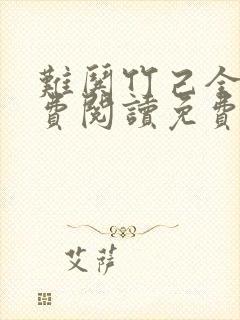 難哭竹己全
費閱讀免費
艾薩